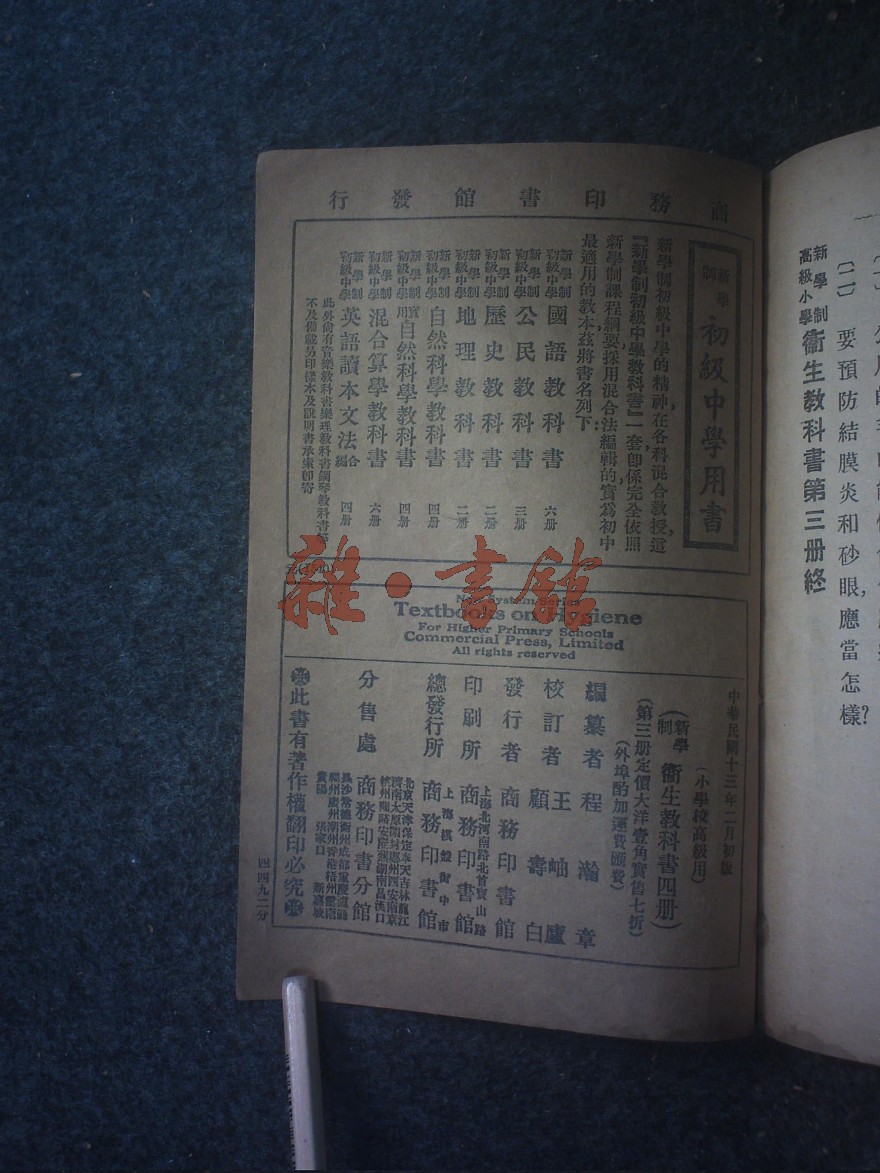 (二)要預防結膜炎和砂眼,應當怎樣?
新學制
高級小學
衞生教科書第三册終
商務印書館發行
新學制
初級中學用書
新學制初級中學的精神,在各科混合教授,這
『新學制初級中學教科書』一套,卽係完全依照
新學制課程綱要,採用混合法編輯的,實爲初中
最適用的教本,茲將書名列下:
新學制初級中學 國語教科書 六册
新學制初級中學 公民教科書 三册
新學制初級中學 歷史教科書 二册
新學制初級中學 地理教科書 二册
新學制初級中學 自然科學教科書 四册
新學制初級中學 實用自然科學教科書 四册
新學制初級中學 混合算學教科書 六册
新學制初級中學 英語讀本文法合編 四册
此外尙有音樂教科書樂理教科書鋼琴教科書等
不及備載另印樣本及說明書承索卽寄
雜·書館
New System Series
Textbooks on Hygiene
For Higher Primary Schools
Commercial Press, Limited
All rights reserved
中華民國十三年二月初版
(小學校高級用)
(新學制 衞生教科書四册)
(第三册定價大洋壹角實售七折)
(外埠酌加運費匯費)
編纂者 程瀚章
校訂者 王岫廬
顧壽白
發行者 商務印書館
印刷所 上海北河南路北首寶山路 商務印書館
總發行所 上海棋盤街中市 商務印書館
分售處 商務印書分館
北京天津保定奉天吉林龍江
※此書有著作權翻印必究※
四四九二分